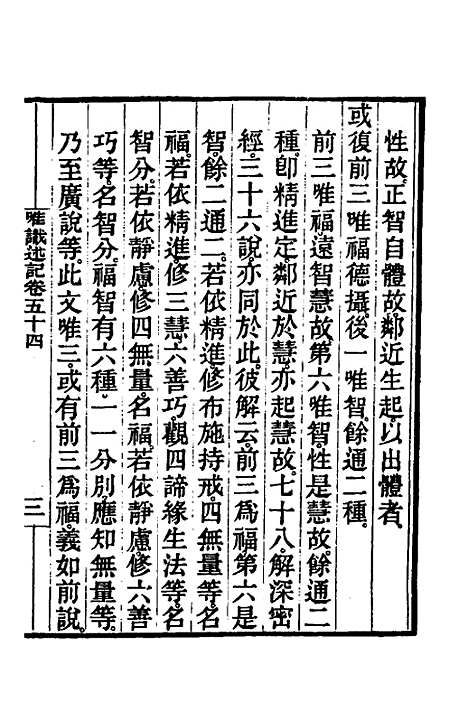 性故。正智自體故。鄰近生起。以出體者。
或復前三唯福德攝。後一唯智。餘通二種。
前三唯福遠智慧故。第六唯智。性是慧故。餘通二
種。卽精進定鄰近於慧。亦起慧故。七十八。解深密
經。三十六說。亦同於此。彼解云。前三爲福。第六是
智。餘二通二。若依精進。修布施持戒。四無量等。名
福。若依精進。修三慧。六善巧。觀四諦緣生法等。名
智分。若依靜慮。修四無量。名福。若依靜慮。修六善
巧等。名智分。福智有六種。一一分別。應知無量等。
乃至廣說等。此文唯三。或有前三爲福。義如前說。
唯識述記卷五十四
三